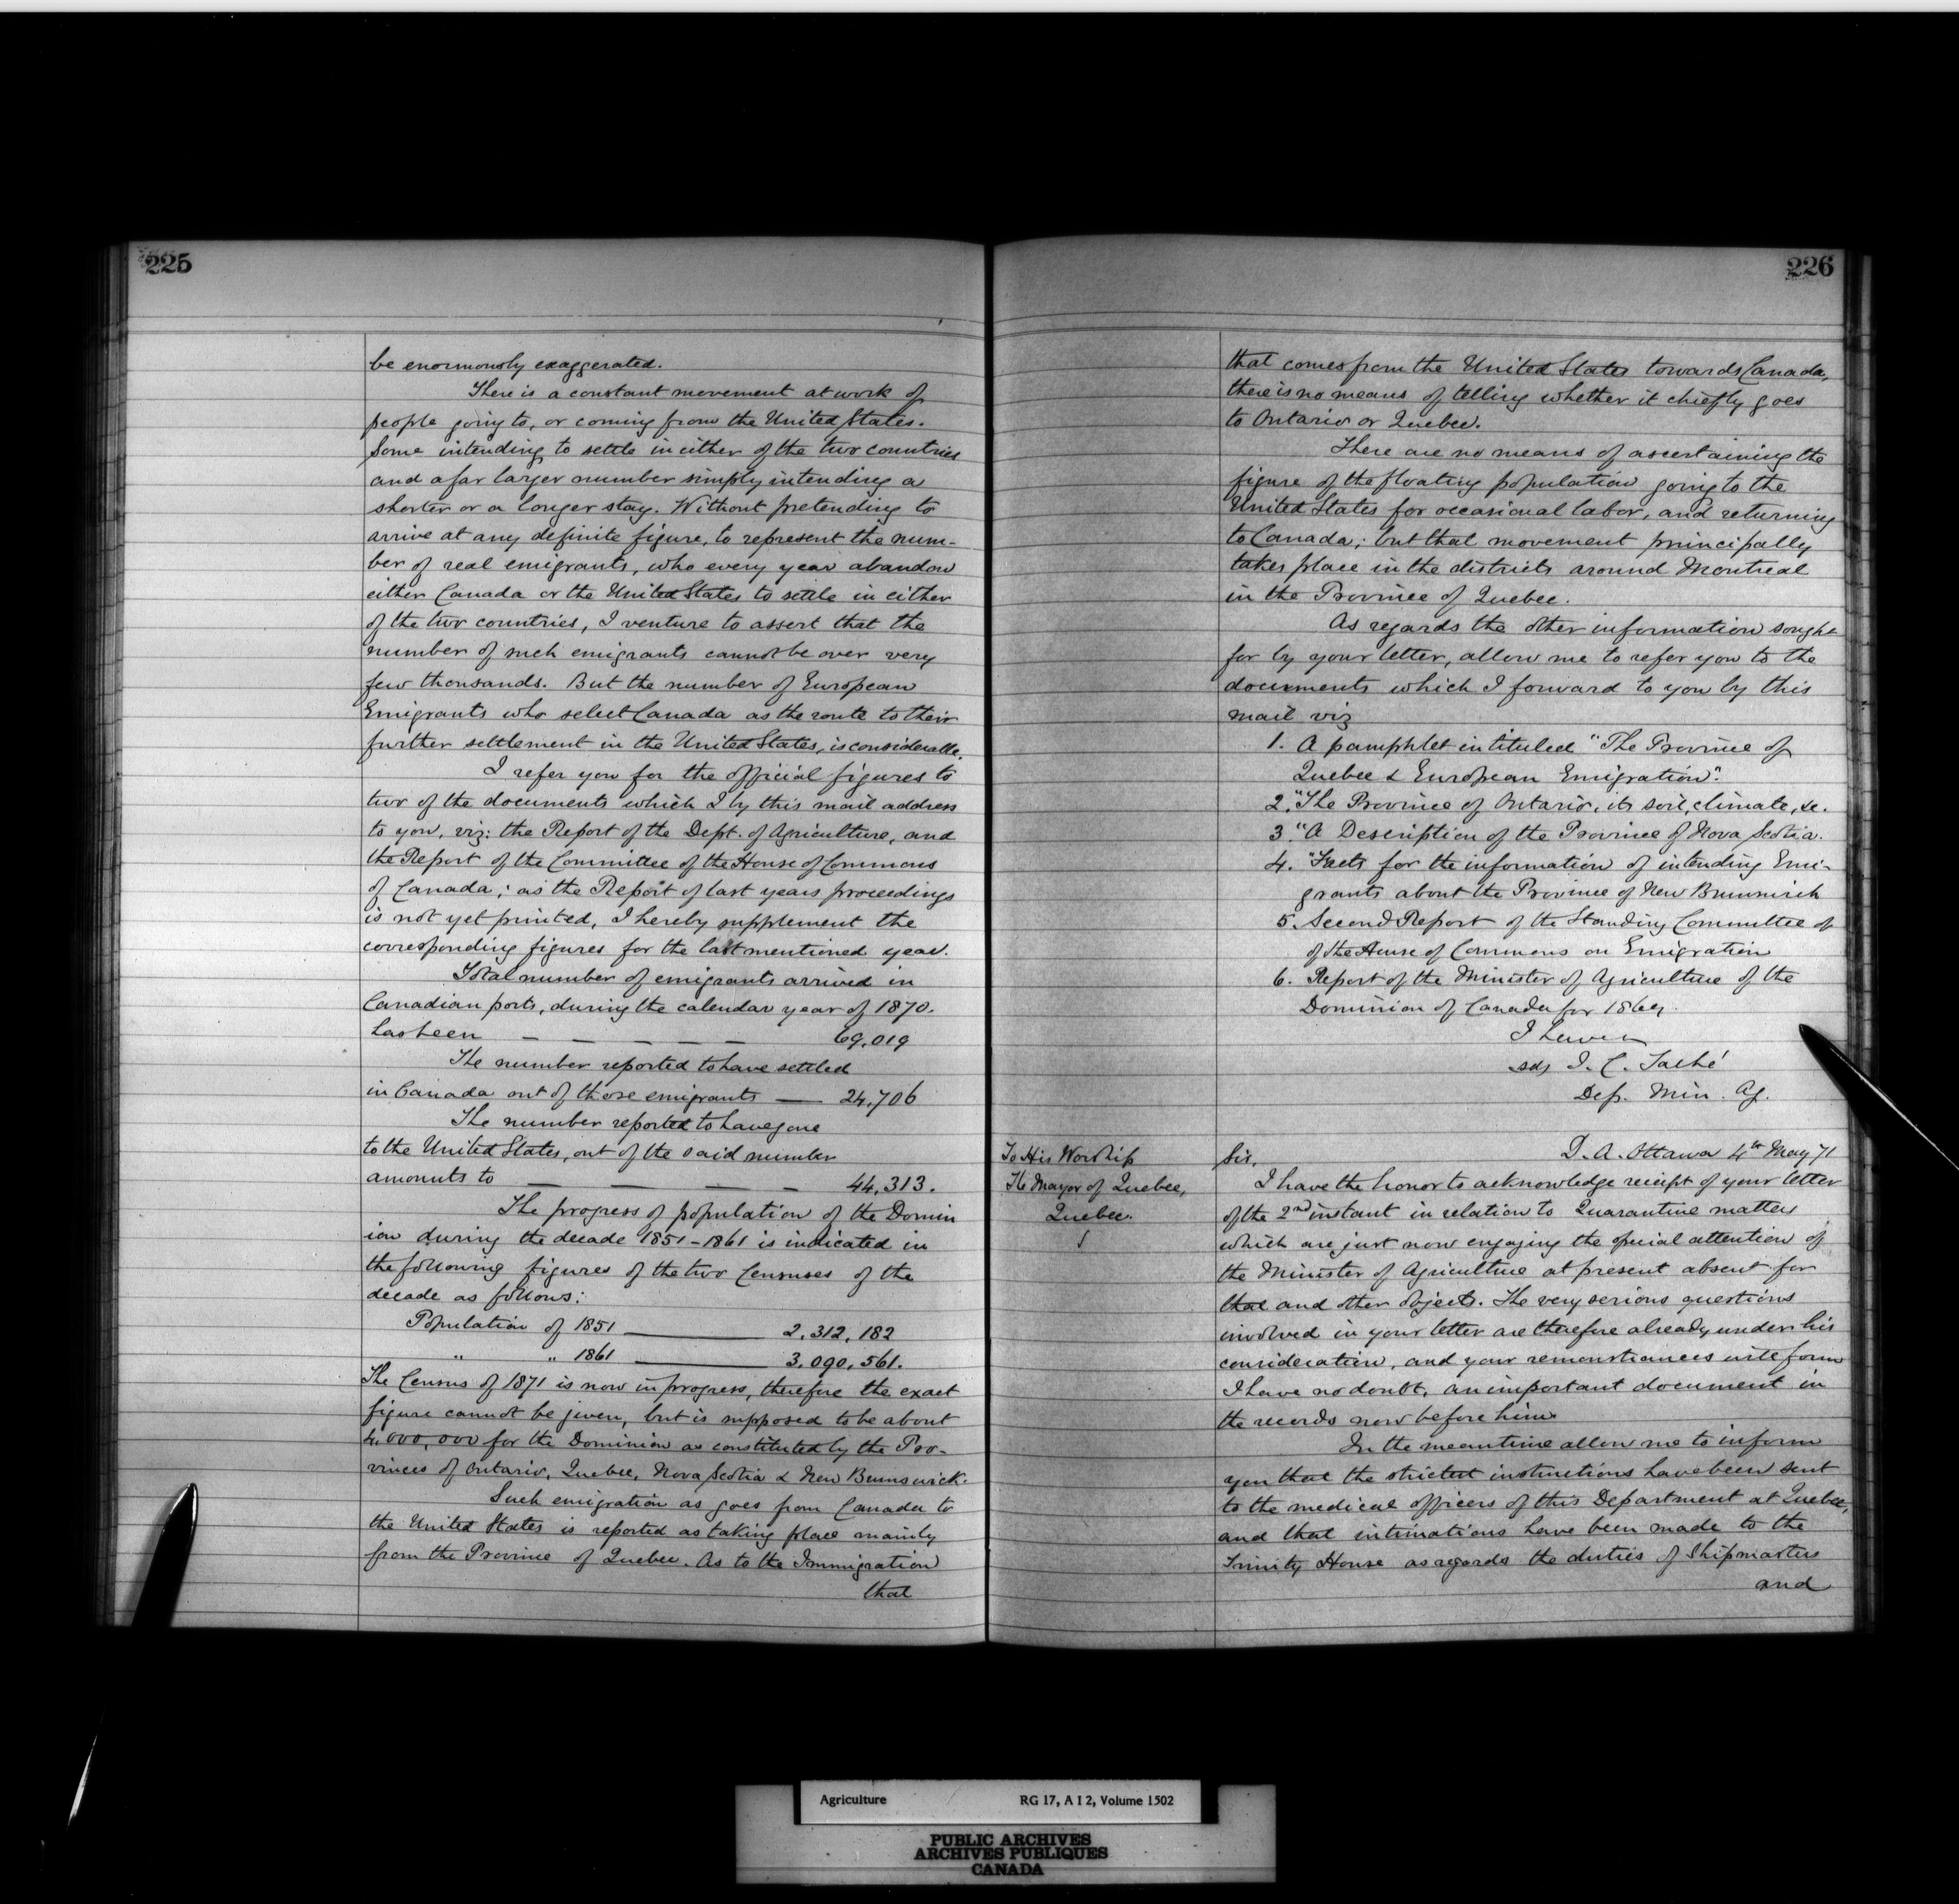 225
be enormously exaggerated.
There is a constant movement at work of
people going to, or coming from the United States.
Some intending to settle in either of the two countries
and a far larger number simply intending a
shorter or a longer stay. Without pretending to
arrive at any definite figure, to represent the num-
ber of real emigrants, who every year abandon
either Canada or the United States to settle in either
of the two countries, I venture to assert that the
number of such emigrants cannot be over very
few thousands. But the number of European
Emigrants who select Canada as the route to their
further settlement in the United States, is considerable.
I refer you for the official figures to
two of the documents which I by this mail address
to you, viz: the Report of the Dept. of Agriculture, and
the Report of the Committee of the House of Commons
of Canada; as the Report of last years proceedings
is not yet printed, I hereby supplement the
corresponding figures for the last mentioned year.
Total number of emigrants arrived in
Canadian ports, during the calendar year of 1870.
has been — — — — — 69,019
The number reported to have settled
in Canada out of those emigrants — 24,706
The number reported to have gone
to the United States, out of the said number
amounts to — — — — 44,313.
The progress of population of the Domin
ion during the decade 1851-1861 is indicated in
the following figures of the two Censuses of the
decade as follows:
Population of 1851 — 2,312,182
" " 1861 — 3,090,561.
The Census of 1871 is now in progress, therefore the exact
figure cannot be given, but is supposed to be about
4,000,000 for the Dominion as constituted by the Pro-
vinces of Ontario, Quebec, Nova Scotia & New Brunswick.
Such emigration as goes from Canada to
the United States is reported as taking place mainly
from the Province of Quebec. As to the Immigration
that
226
that comes from the United States towards Canada,
there is no means of telling whether it chiefly goes
to Ontario or Quebec.
There are no means of ascertaining the
figure of the floating population going to the
United States for occasional labor, and returning
to Canada; but that movement principally
takes place in the districts around Montreal
in the Province of Quebec.
As regards the other information sought
for by your letter, allow me to refer you to the
documents which I forward to you by this
mail viz
1. A pamphlet intituled "The Province of
Quebec & European Emigration".
2. "The Province of Ontario, its soil, climate, &c.
3. "A Description of the Province of Nova Scotia.
4. "Facts for the information of intending Emi-
grants about the Province of New Brunswick
5. Second Report of the Standing Committee of
of the House of Commons on Emigration
6. Report of the Minister of Agriculture of the
Dominion of Canada for 1869.
I have
sd, J. C. Taché
Dep. Min. Ag.
To His Worship
The Mayor of Quebec,
Quebec.
D. A. Ottawa 4th May 71
Sir,
I have the honor to acknowledge receipt of your letter
of the 2nd instant in relation to Quarantine matters
which are just now engaging the special attention of
the Minister of Agriculture at present absent for
that and other objects. The very serious questions
involved in your letter are therefore already under his
consideration, and your remonstrances will form
I have no doubt, an important document in
the records now before him.
In the meantime allow me to inform
you that the strictest instructions have been sent
to the medical officers of this Department at Quebec,
and that intimations have been made to the
Trinity House as regards the duties of Shipmasters
and
Agriculture RG 17, A I 2, Volume 1502
PUBLIC ARCHIVES
ARCHIVES PUBLIQUES
CANADA